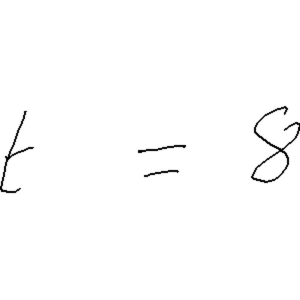 t = 8